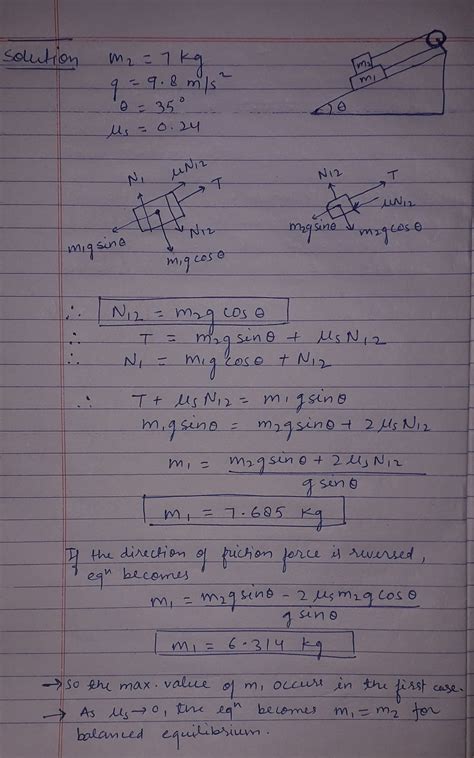 Solution m₂ = 7 kg
g = 9.8 m/s²
θ = 35°
μs = 0.24
m₂
m₁
θ
N₁ μN₁₂ T
N₁₂
m₁g sinθ
m₁g cosθ
N₁₂ T
μN₁₂
m₂g sinθ m₂g cosθ
∴ N₁₂ = m₂g cosθ
∴ T = m₂g sinθ + μsN₁₂
∴ N₁ = m₁g cosθ + N₁₂
∴ T + μsN₁₂ = m₁g sinθ
m₁g sinθ = m₂g sinθ + 2μsN₁₂
m₁ = m₂g sinθ + 2μsN₁₂
g sinθ
m₁ = 7.685 kg
If the direction of friction force is reversed,
eqⁿ becomes
m₁ = m₂g sinθ - 2μsm₂g cosθ
g sinθ
m₁ = 6.314 kg
→ So the max. value of m₁ occurs in the first case.
→ As μs → 0, the eqⁿ becomes m₁ = m₂ for
balanced equilibrium.